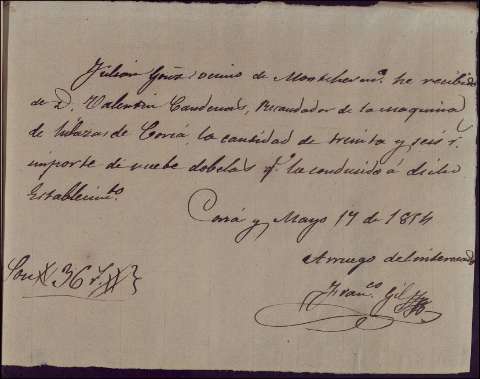 Julian Gonz vecino de Montehermo. he recibido
de D. Valentin Candenas, Recaudador de la maquina
de de Coria, la cantidad de treinta y seis r.
importe de nuebe dobelas q.e la conducido á dicho
Establecim.to
Coria y Mayo 17 de 1854
Arruego del interesado
Fran.co Gil
Son 36 r.